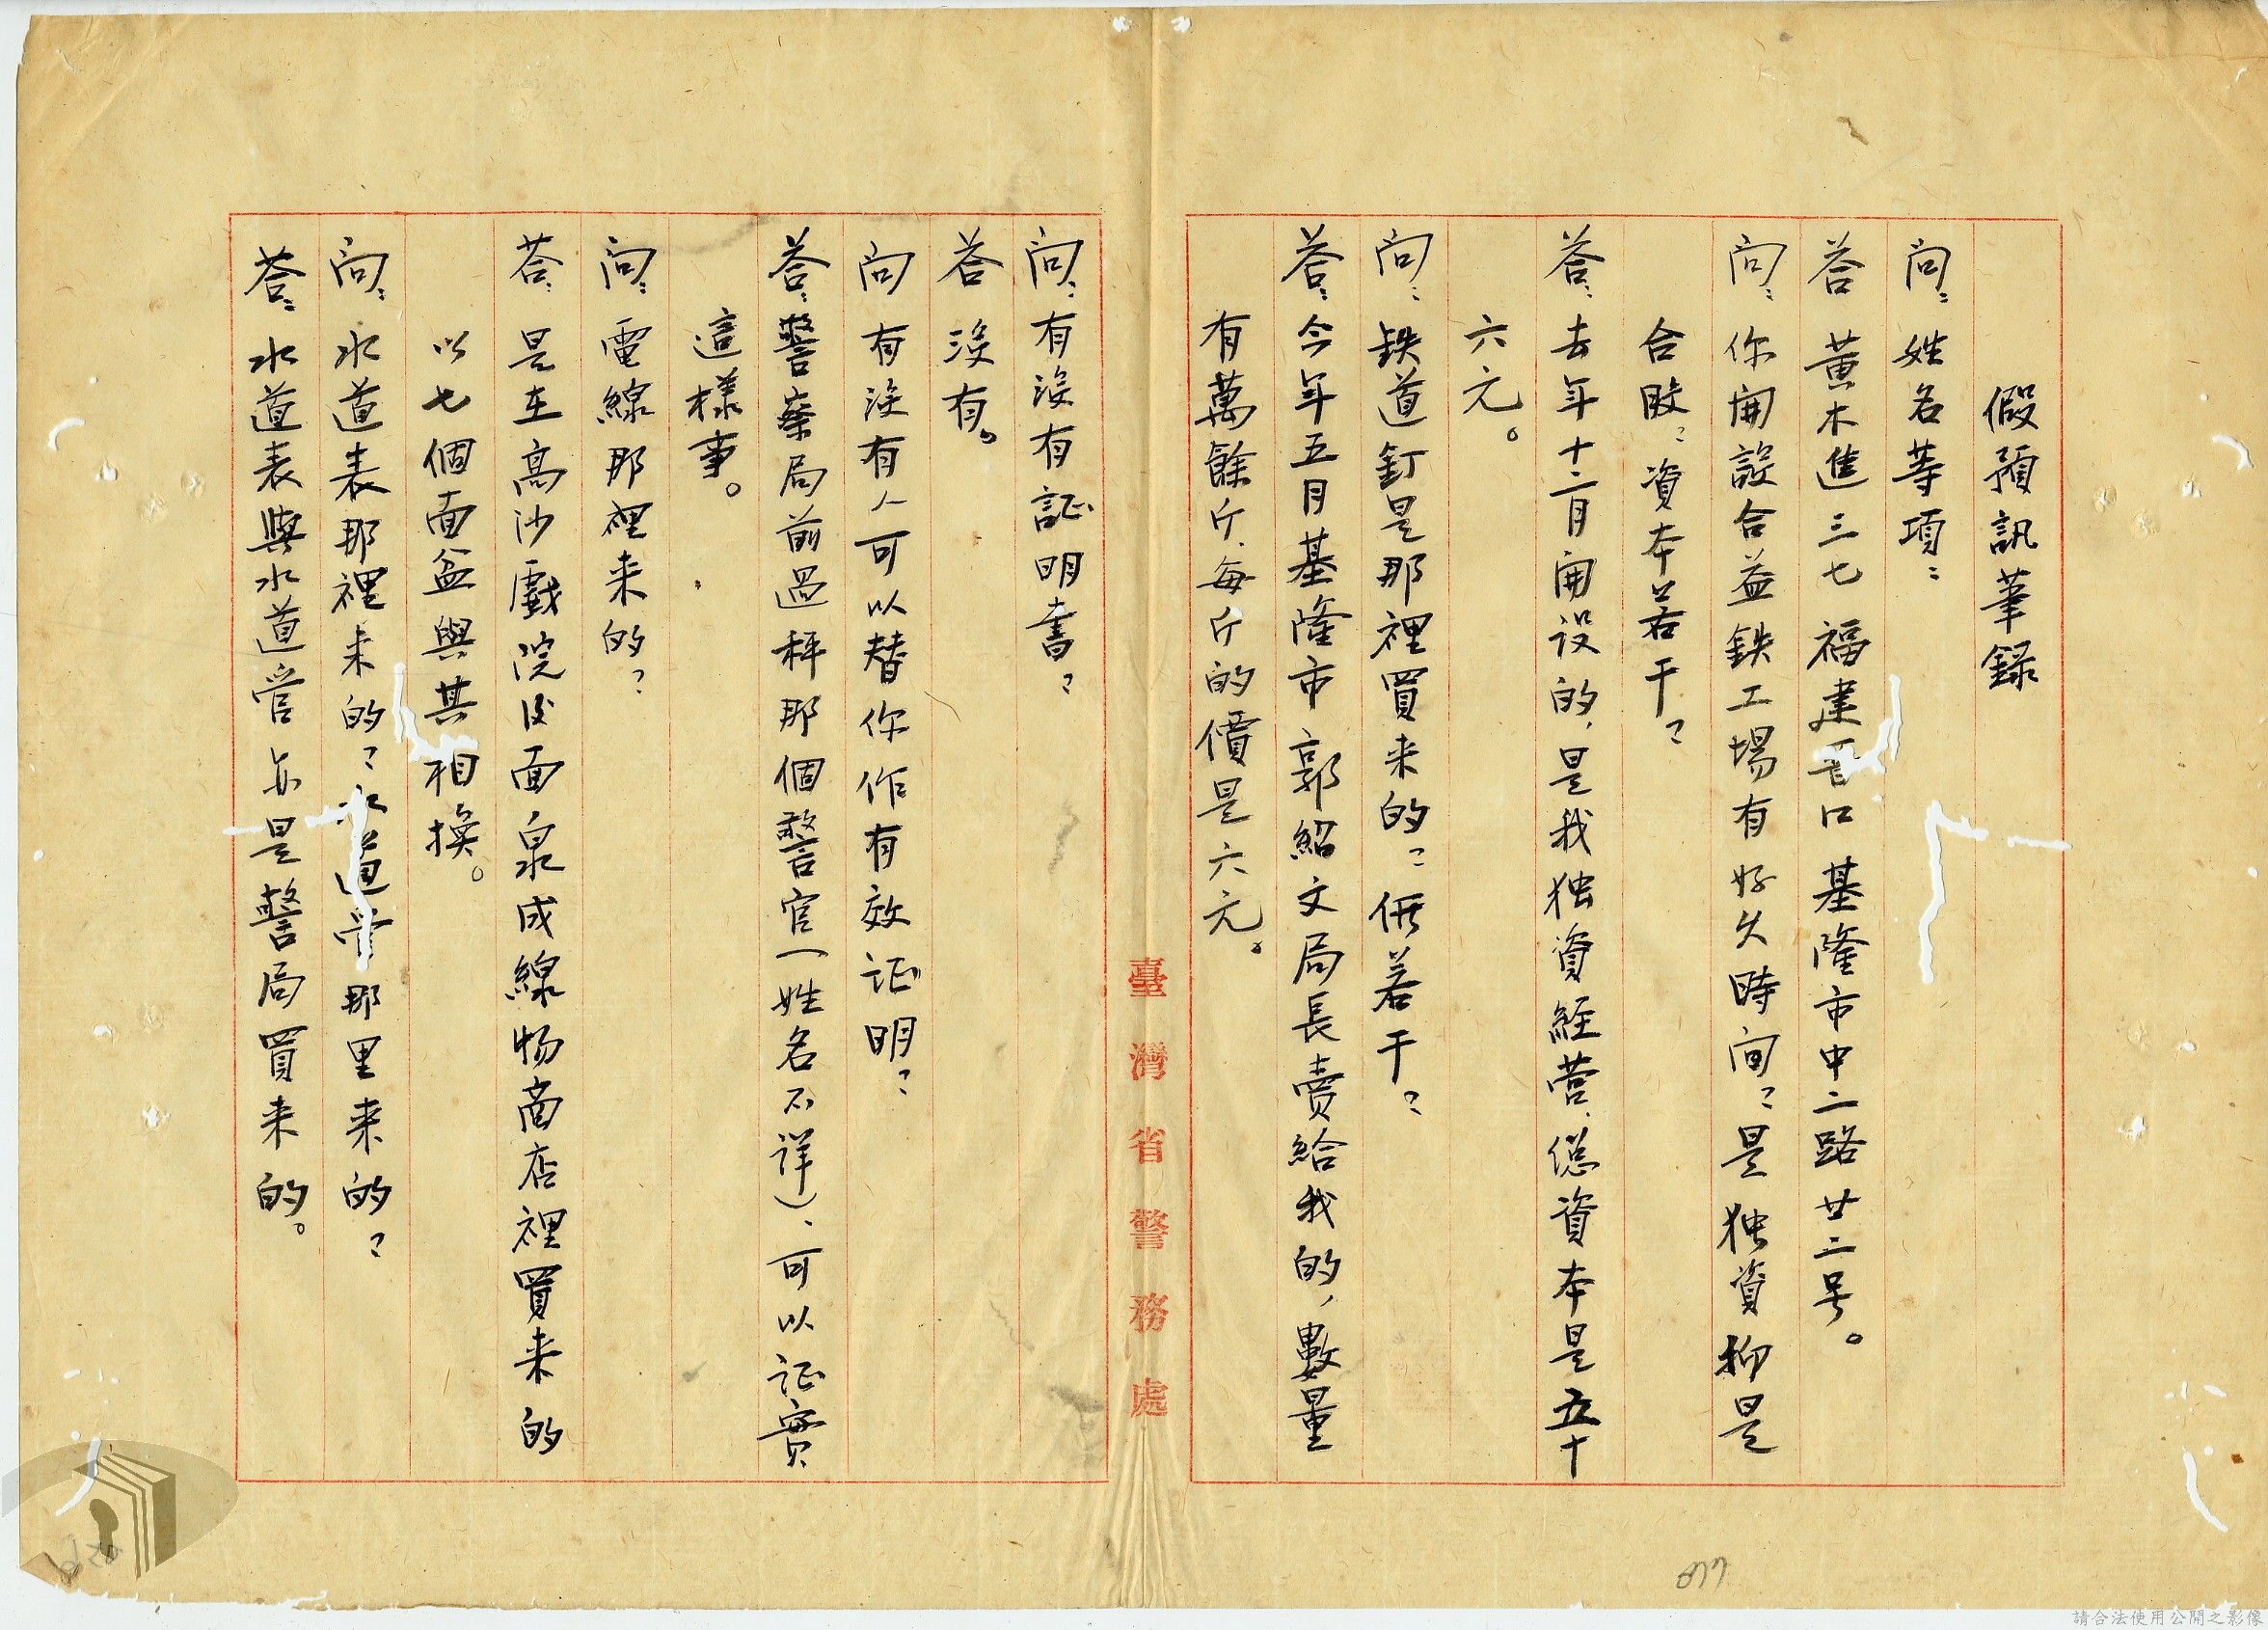 假預訊筆錄
問：姓名等項：
答 黃木進 三七 福建晋口 基隆市中二路廿二号。
問：你開設合益鉄工場有好久時间？是独資抑是
合股？資本若干？
答：去年十二月開设的，是我独資経营，總資本是五十
六元。
問：鉄道釘是那裡買来的？価若干？
答：今年五月基隆市郭紹文局長賣給我的，數量
有萬餘斤，每斤的價是六元。
臺灣省警務處
問：有沒有証明書？
答 沒有。
问 有沒有人可以替你作有效证明？
答：警察局前過秤那個警官（姓名不详）、可以证實
這樣事。
問：電線那裡来的？
答：是在高沙戲院后面泉成線物商店裡買来的
以七個面盆與其相換。
问：水道表那裡来的？水道管那里来的？
答：水道表與水道管亦是警局買来的。
677
請合法使用公開之影像